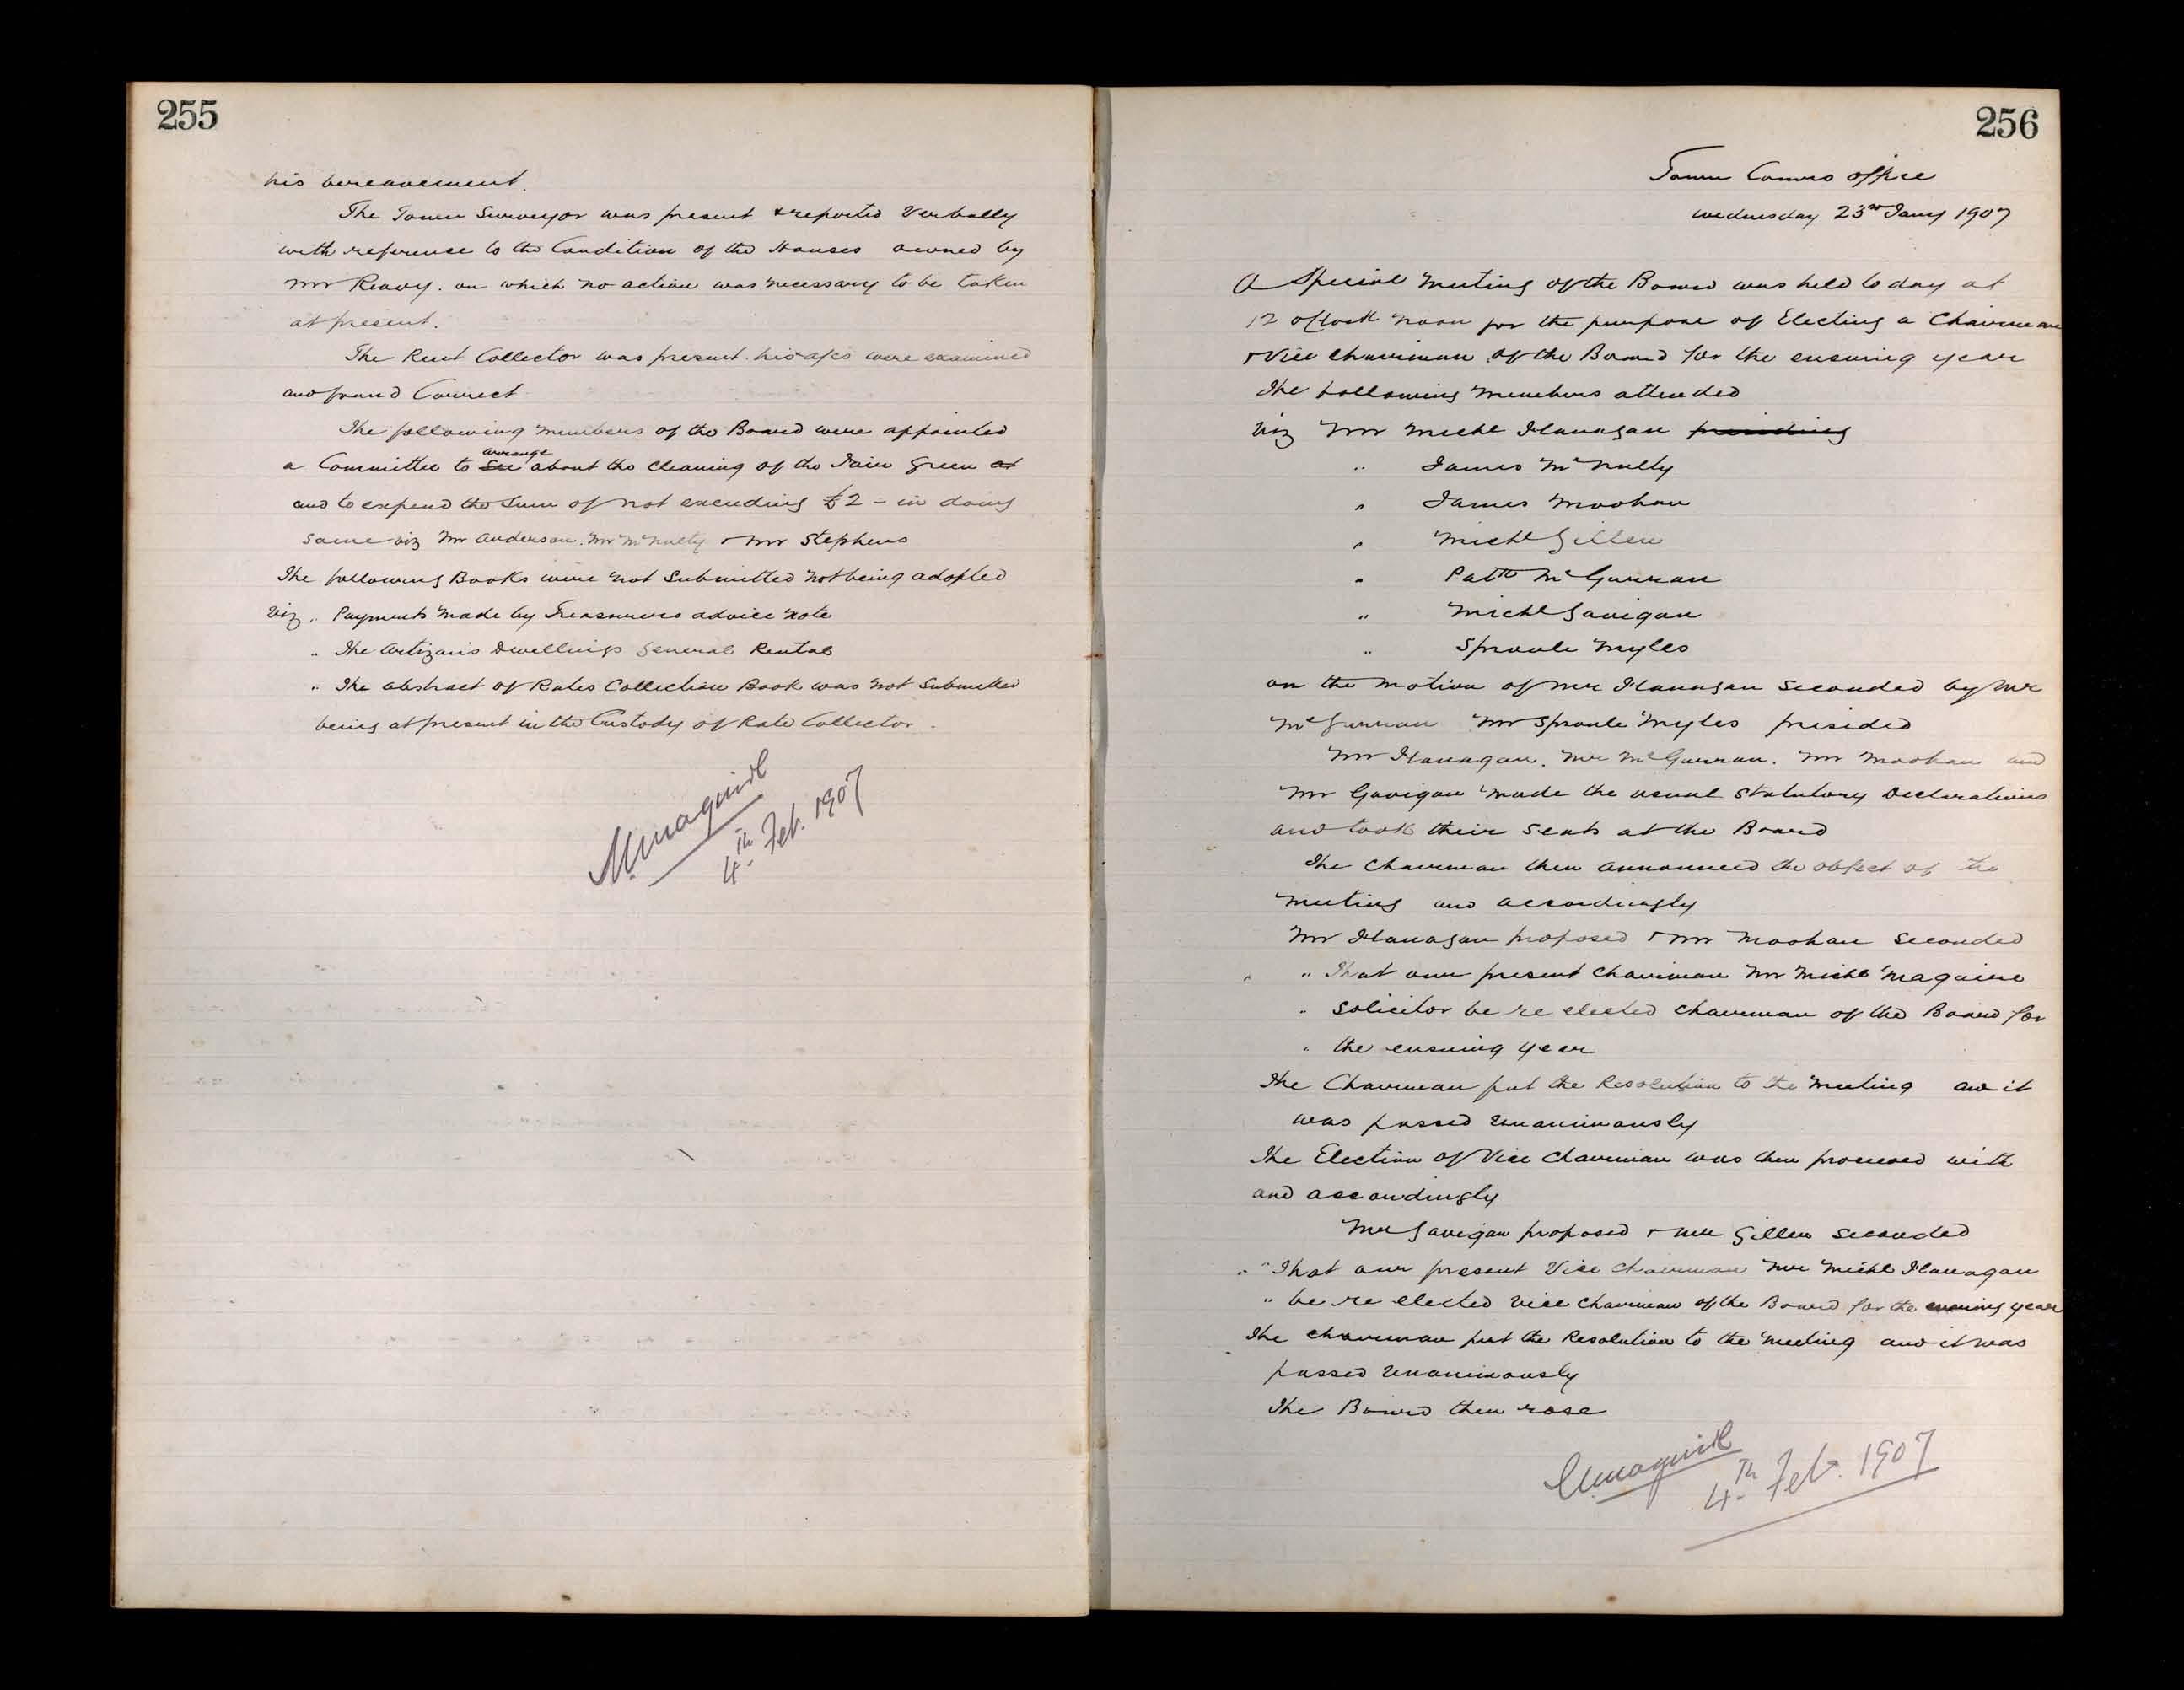 255
his bereavement.
The Town Surveyor was present & reported Verbally
with reference to the Condition of the Houses owned by
Mr Reavy. on which no action was necessary to be taken
at present.
The Rent Collector was present. his a/cs were examined
and found Correct
The following members of the Board were appointed
arrange
a Committee to See about the cleaning of the Fair Green at
and to expend the Sum of not exceeding £2 - in doing
same viz Mr Anderson. Mr McNulty & Mr Stephens
The following Books were not Submitted not being adopted
viz " Payments made by Treasurers advice note
" The Artizans Dwellings General Rental
" The abstract of Rates Collection Book was not Submitted
being at present in the Custody of Rate Collector.
MMaguire
4th Feb. 1907
256
Town Comrs office
Wednesday 23rd Jany 1907
A Special meeting of the Board was held to day at
12 oClock noon for the purpose of Electing a Chairman
& Vice Chairman of the Board for the ensuing year
The following members attended
viz Mr Michl Flanagan presiding
" James McNulty
" James Moohan
" Michl Gillen
" Patk McGurran
" Michl Gavigan
" Sproule Myles
on the motion of Mr Flanagan Seconded by Mr
McGurran Mr Sproule Myles presided
Mr Flanagan. Mr McGurran. Mr Moohan and
Mr Gavigan made the usual Statutory Declarations
and took their Seats at the Board
The Chairman then announced the object of the
meeting and accordingly
Mr Flanagan proposed & Mr Moohan Seconded
" " That our present Chairman Mr Michl Maguire
" Solicitor be re elected Chairman of the Board for
" the ensuing year
The Chairman put the Resolution to the meeting and it
was passed unanimously
The Election of Vice Chairman was then proceeded with
and accordingly
Mr Gavigan proposed & Mr Gillen Seconded
" " That our present Vice Chairman Mr Michl Flanagan
" be re elected Vice Chairman of the Board for the ensuing year
The Chairman put the Resolution to the meeting and it was
passed unanimously
The Board then rose
MMaguire
4th Feb. 1907